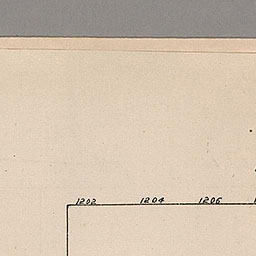 1202 1204 1206